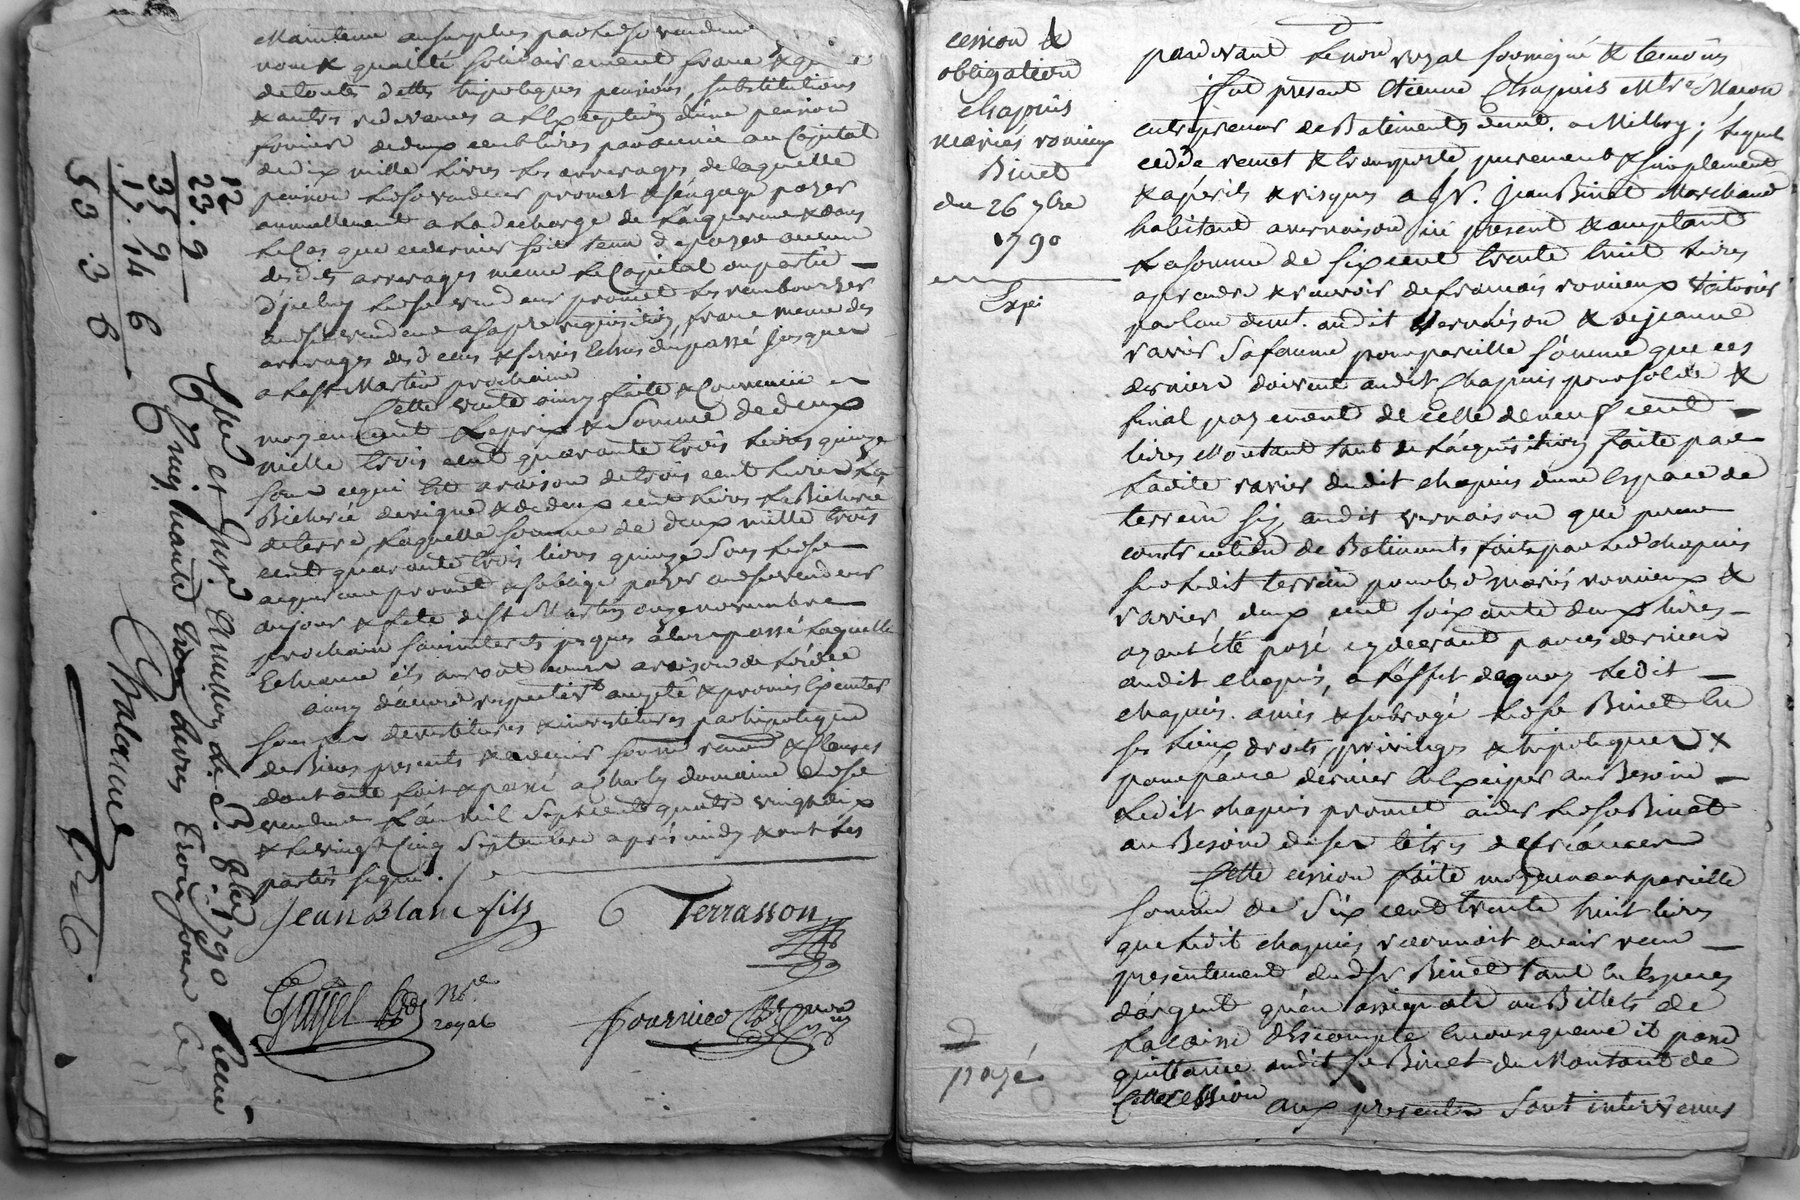 Maintenu au surplus par led. sr vendeur
nom & qualité solidairement franc & quitte
de toutes dettes hipoteques pensions, substitutions
& autres redevances a l'exception d'une pension
de deux cent livres au Capital
de dix mille livres les arrerages de laquelle
pension led. sr vendeur promet & s'engage payer
annuellement a la decharge de l'acquereur & dans
le cas que ce dernier soit tenu de payer aucun
desdits arrerages meme le Capital ou partie
d'jceluy led. sr vendeur promet les rembourser
a sa premiere requisition, franc meme des
arrerages des cens & servis echus du passé jusques
a la st Martin prochaine
Cette vente ainsy faite & Convenue
moyennant le prix & Somme de deux
mille trois cent quarante trois livres quinze
sous ce qui est a raison de trois cent livres la
Bicherée de vigne & de deux cent livres la Bicherée
de terre, laquelle somme de deux mille trois
cent quarante trois livres quinze Sous led. sr
acquereur promet & s'oblige payer aud. sr vendeur
au jour & fete de st Martin onze novembre
prochain sans interets jusques alors passé laquelle
Echeance ils auront cours a raison de l'édit
ainsy d'accord respectivt accepté & promis Executer
sous les devestitures & investitures par hipoteque
de Biens presents & avenir soumis renonc & Clauses
dont acte fait & passé a Charly domaine dud. sr
vendeur l'an mil sept cent quatre vingt dix
& le vingt Cinq Septembre apres midy & ont les
parties signé.
Jean Blanc fils
Terrasson
Gayet
nre
royal
fournier
12
23. 9
35 9
17. 14 6
53. 3 6
Cllé et Jnsé. a le 8. 8bre 1790 Reçu
Cinq. trois Livres Trois sous 6 d
cession &
obligation
Chapuis
mariés romieux
Binet
du 26 7bre
1790
Expé
payé
pardevant le nore royal soussigné & temoins
fut present Etienne Chapuis Mtre Macon
entrepreneur de Batiments demt. a Millery; lequel
cedde remet & transporte purement & simplement
& a perils & risques a Sr. Jean Binet Marchand
habitant a vernaison ici present & acceptant
la somme de six cent trente huit livres
a prendre & recevoir de francois romieux Voiturier
par eau demt. audit Vernaison & de jeanne
ravier sa femme pour pareille somme que ces
derniers doivent audit Chapuis pour solde &
final payement de celle de neuf cent
livres Montant tant de l'acquisition faite par
ladite ravier dudit chapuis d'une Espace de
terrein sis audit vernaison que pour
construction de Batiments faits par led. chapuis
sur ledit terrein pour lesd. mariés romieux &
ravier, deux cent soixante deux livres
ayant été payé cy devant par ces derniers
audit chapuis, a l'effet de quoy ledit
chapuis a mis & subrogé led. sr Binet en
ses lieux, droits, privileges & hipoteques &
pour par ce dernier en Exciper au Besoin
ledit chapuis promet aider led. sr Binet
au Besoin de ses titres de créances
Cette cession faite moyennant pareille
somme de Six cent trente huit livres
que ledit chapuis reconnoit avoir reçu
presentement dud. sr Binet tant en Especes
d'argent qu'en assignats ou Billets de
la caisse d'Escompte en consequence il passe
quittance audit sr Binet du Montant de
Cette cession
aux presentes sont intervenus